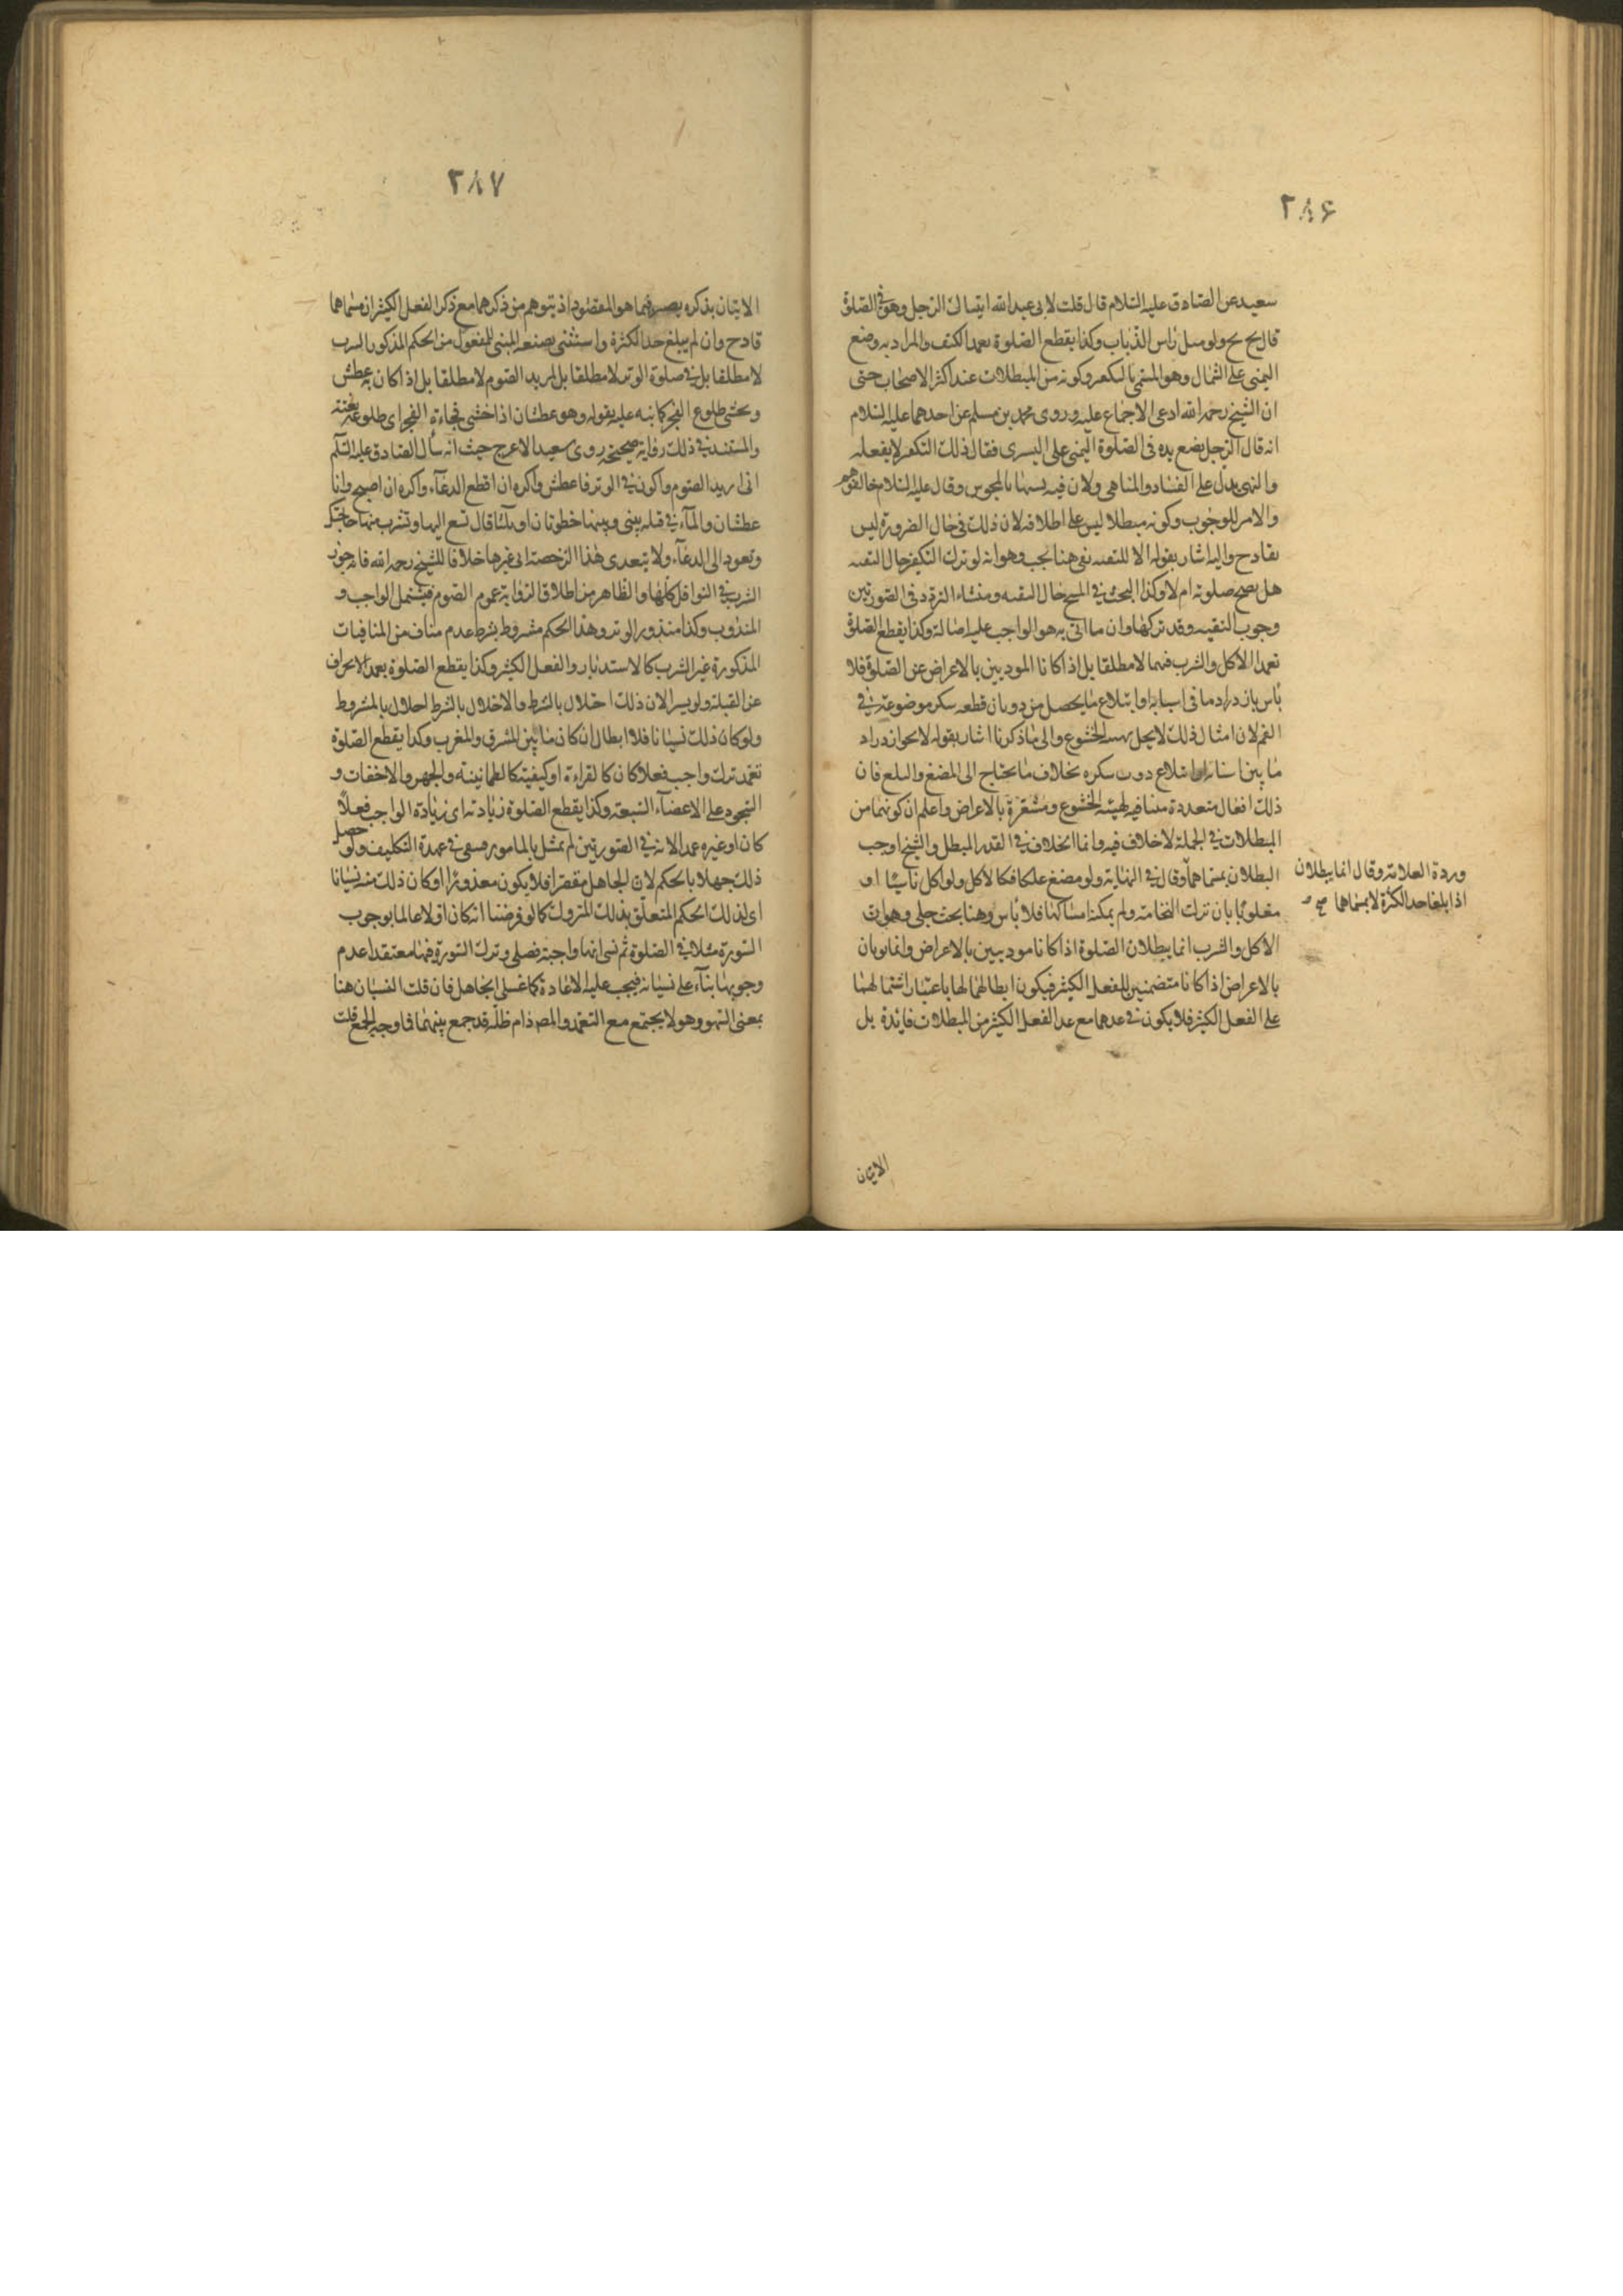 ٢٨۶
سعيد عن الصادق عليه السلام قال قلت لابى عبد الله ايتباكى الرجل وهو فى الصلوة
قال بخ بخ ولو مثل راس الذباب وكذا يقطع الصلوة تعمد الكتف والمراد به وضع
اليمنى على الشمال وهو المسمى بالتكفير وكونه من المبطلات عند اكثر الاصحاب حتى
ان الشيخ رحمه الله ادعى الاجماع عليه وروى محمد بن مسلم عن احدهما عليه السلام
انه قال الرجل يضع يده فى الصلوة اليمنى على اليسرى فقال ذلك التكفير لا يفعله
والنهى يدل على الفساد والمناهى ولان فيه تشبها بالمجوس وقال عليه السلام خالفوهم
والامر للوجوب وكونه مبطلا ليس على اطلاقه لان ذلك فى حال الضرورة ليس
بقادح واليه اشار بقوله الا للتقيه بقى هنا بحث وهو انه لو ترك التكفير حال التقيه
هل يصح صلوته ام لا وكذا البحث فى المسح حال التقيه ومنشاء التردد فى الصورتين
وجوب التقيه وقد تركها وان ما اتى به هو الواجب عليه اصالة وكذا يقطع الصلوة
تعمد الاكل والشرب فيهما لا مطلقا بل اذا كانا الموديين بالاعراض عن الصلوة فلا
باس بازدراد ما فى اسنانه او ابتلاع ما يحصل من ذوبان قطعه سكر موضوعة فى
الفم لان امثال ذلك لا يخل بهيئه الخشوع والى ما ذكرنا اشار بقوله لا نحو ازدراد
ما بين اسنانه او ابتلاع ذوب سكره بخلاف ما يحتاج الى المضغ والبلع فان
ذلك افعال متعددة منافيه لهيئه الخشوع ومشعرة بالاعراض واعلم ان كونهما من
المبطلات فى الجملة لا خلاف فيه وانما الخلاف فى القدر المبطل والشيخ اوجب
البطلان بمسماهما وقال فى النهاية ولو مضغ علكا فكالاكل ولو اكل ناسيا او
مغلوبا بان نزلت النخامة ولم يمكنه امساكها فلا باس وهنا بحث جلى وهو ان
الاكل والشرب انما يبطلان الصلوة اذا كانا موديين بالاعراض وانما يوديان
بالاعراض اذا كانا متضمنين للفعل الكثير فيكون ابطالهما لها باعتبار اشتمالهما
على الفعل الكثير فلا يكون فى عدهما مع عد الفعل الكثير من المبطلات فايدة بل
ورده العلامة وقال انما يبطلان
اذا بلغا حد الكثرة لا بمسماهما صح
الاتيان
٢٨٧
الاتيان بذكره يصير فيما هو المقصود اذ يتوهم من ذكرهما مع ذكر الفعل الكثير ان مسماهما
قادح وان لم يبلغ حد الكثرة واستثنى بصيغه المبنى للمفعول من الحكم المذكور الشرب
لا مطلقا بل فى صلوة الوتر لا مطلقا بل لمريد الصوم لا مطلقا بل اذا كان به عطش
وخشى طلوع الفجر كما نبه عليه بقوله وهو عطشان اذا خشى فجاءة الفجر اى طلوعه بغتة
والمستند فى ذلك رواية صحيحة روى سعيد الاعرج حيث انه سال الصادق عليه السلم
انى اريد الصوم واكون فى الوتر فاعطش واكره ان اقطع الدعاء واكره ان اصبح وانا
عطشان والماء فى قلة بينى وبينها خطوتان او ثلثا قال تسعى اليها وتشرب منها حاجتك
وتعود الى الدعاء ولا يتعدى هذا الرخصة الى غيرها خلافا للشيخ رحمه الله فانه جوز
الشرب فى النوافل كلها والظاهر من اطلاق الرواية عموم الصوم فيشمل الواجب و
المندوب وكذا منذور الوتر وهذا الحكم مشروط بشرط عدم مناف من المنافيات
المذكورة غير الشرب كالاستدبار والفعل الكثير وكذا يقطع الصلوة تعمد الانحراف
عن القبلة ولو يسيرا لان ذلك اخلال بالشرط والاخلال بالشرط اخلال بالمشروط
ولو كان ذلك نسيانا فلا ابطال ان كان ما بين المشرق والمغرب وكذا يقطع الصلوة
تعمد ترك واجب فعلا كان كالقراءة او كيفيته كالطمانينة والجهر والاخفات و
السجود على الاعضاء السبعة وكذا يقطع الصلوة زيادته اى زيادة الواجب فعلا
كان او غيره عمدا لانه فى الصورتين لم يمتثل بالمامور فيبقى فى عهدة التكليف ولو حصل
ذلك جهلا بالحكم لان الجاهل مقصر فلا يكون معذورا او كان ذلك منه نسيانا
اى لذلك الحكم المتعلق بذلك المتروك كما لو فرضنا انه كان اولا عالما بوجوب
السورة مثلا فى الصلوة ثم نسى انها واجبة فصلى وترك السورة فيها معتقدا عدم
وجوبها بناء على نسيانه فيجب عليه الاعادة كما على الجاهل فان قلت النسيان هنا
بمعنى السهو وهو لا يجتمع مع التعمد والمص دام ظله قد جمع بينهما فما وجه الجمع قلت